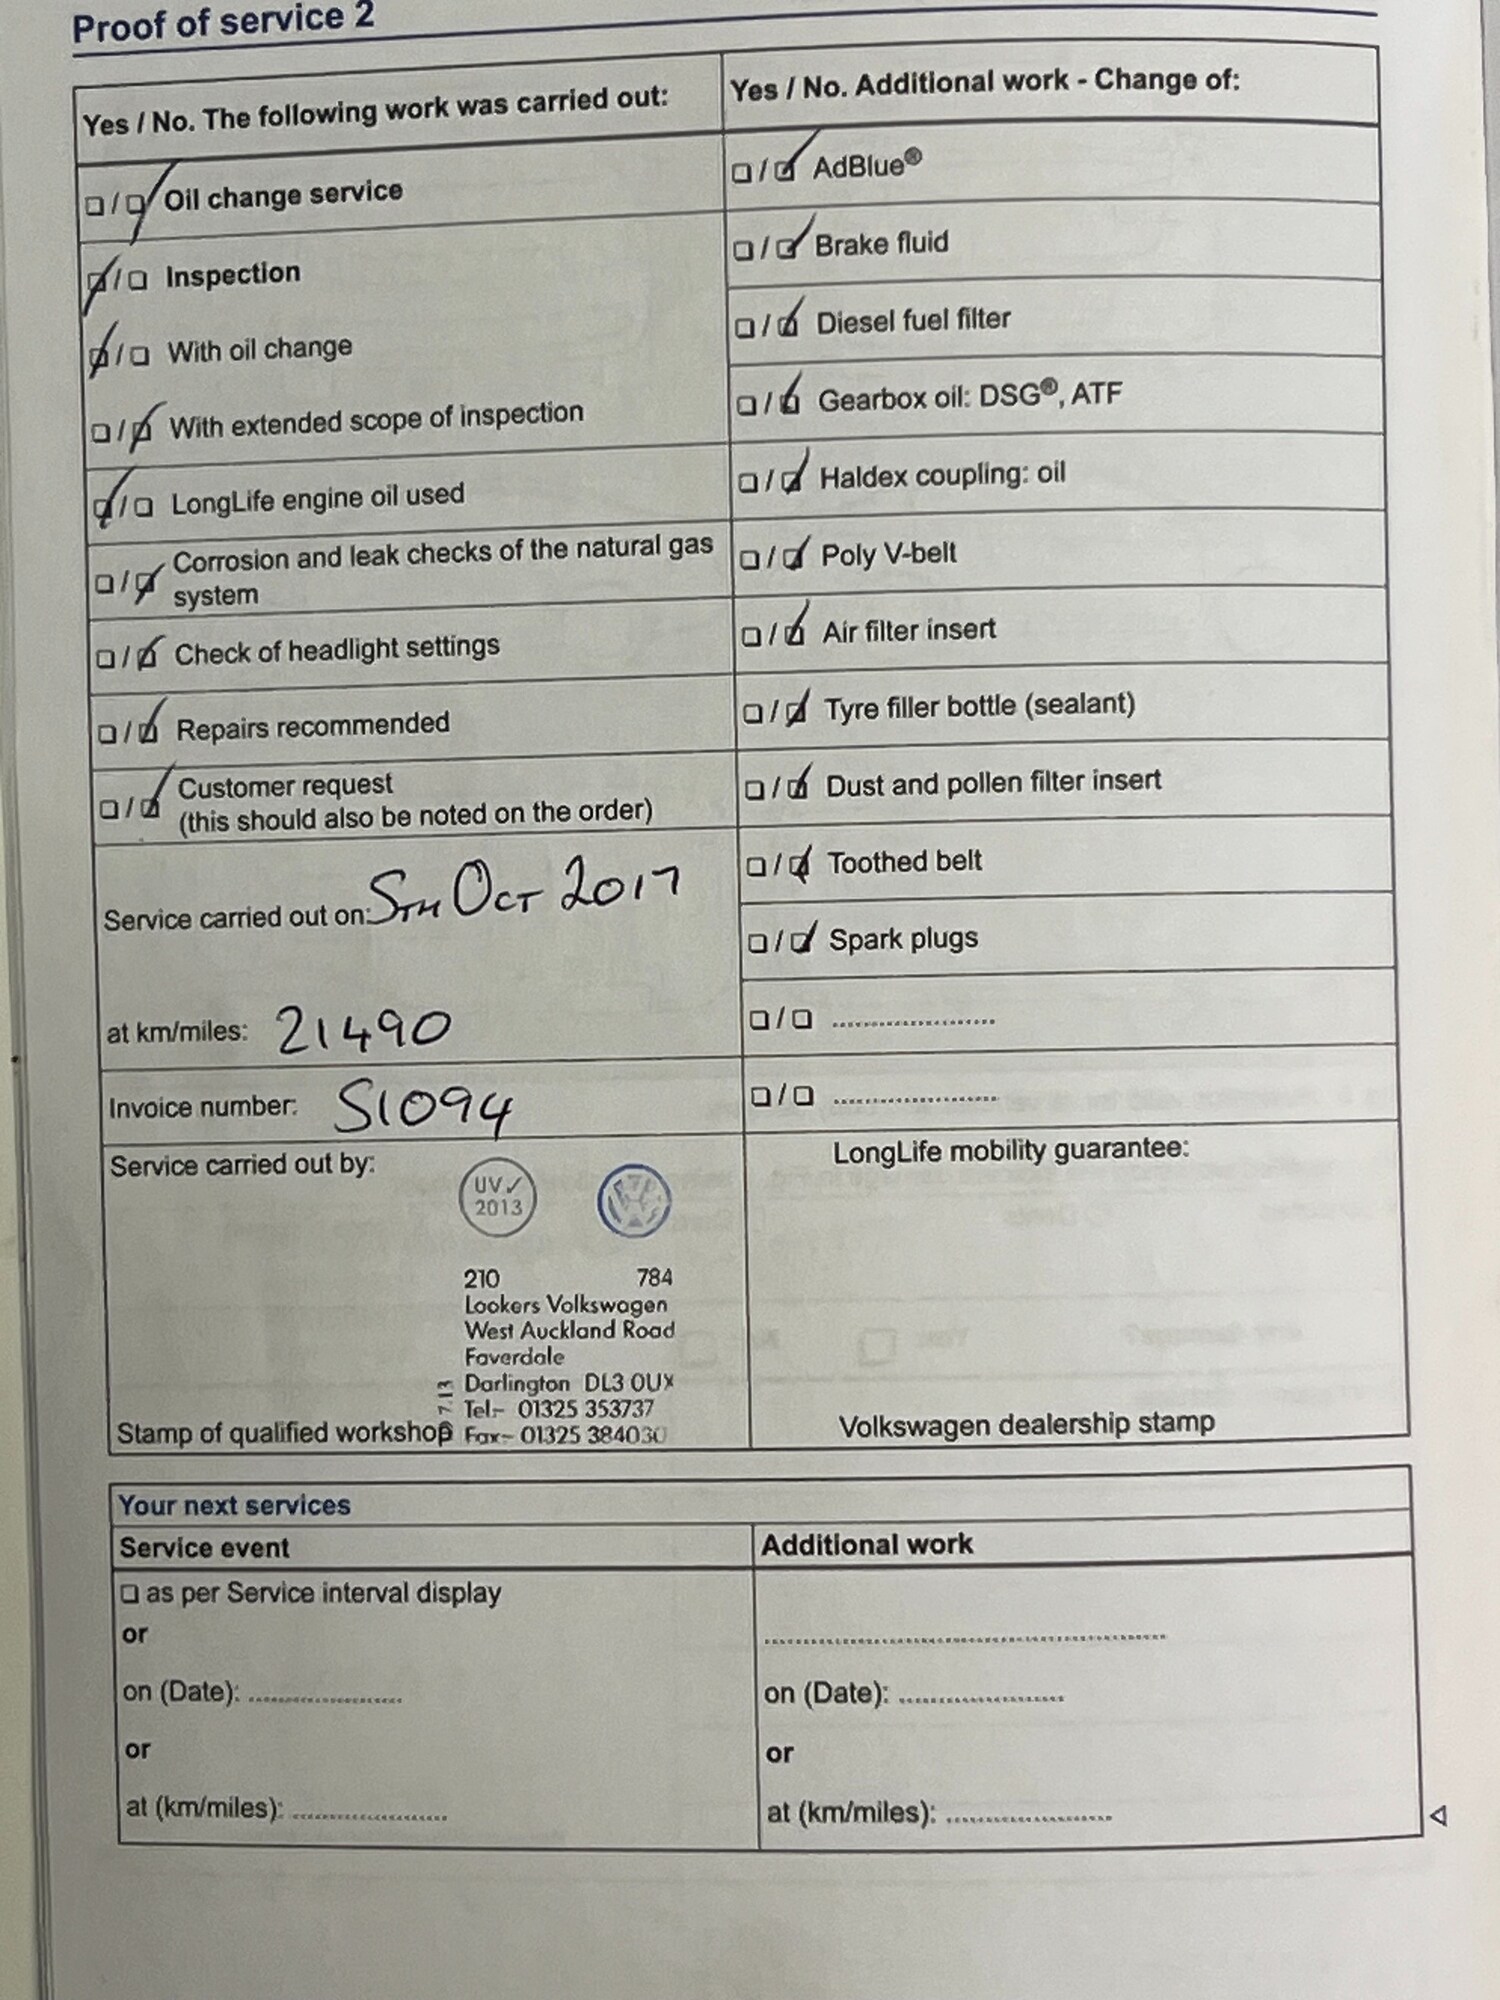 Proof of service 2
Yes / No. The following work was carried out:
☐/☑ Oil change service
☑/☐ Inspection
☑/☐ With oil change
☐/☑ With extended scope of inspection
☑/☐ LongLife engine oil used
☐/☑ Corrosion and leak checks of the natural gas
system
☐/☑ Check of headlight settings
☐/☑ Repairs recommended
☐/☑ Customer request
(this should also be noted on the order)
Service carried out on: 5TH OCT 2017
at km/miles: 21490
Invoice number: S1094
Service carried out by:
UV✓
2013
210 784
Lookers Volkswagen
West Auckland Road
Faverdale
Darlington DL3 0UX
Tel:- 01325 353737
Fax- 01325 384030
Stamp of qualified workshop
Yes / No. Additional work - Change of:
☐/☑ AdBlue®
☐/☑ Brake fluid
☐/☑ Diesel fuel filter
☐/☑ Gearbox oil: DSG®, ATF
☐/☑ Haldex coupling: oil
☐/☑ Poly V-belt
☐/☑ Air filter insert
☐/☑ Tyre filler bottle (sealant)
☐/☑ Dust and pollen filter insert
☐/☑ Toothed belt
☐/☑ Spark plugs
☐/☐ ........................
☐/☐ ........................
LongLife mobility guarantee:
Volkswagen dealership stamp
Your next services
Service event
☐ as per Service interval display
or
on (Date): ......................
or
at (km/miles): ......................
Additional work
............................................................
on (Date): ........................
or
at (km/miles): ........................